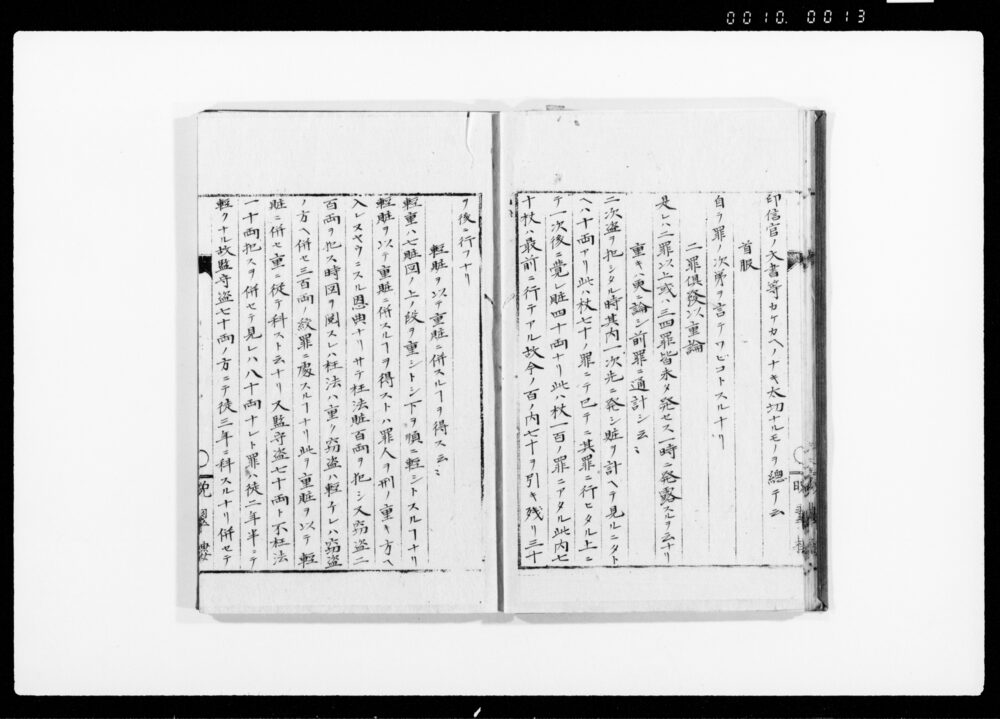 0010. 0013
印信官ノ文書等カケカヘノナキ大切ナルモノヲ總テ云
首服
自ラ罪ノ次第ヲ言テワビコトスルナリ
二罪俱發以重論
是レハ二罪以上或ハ三四罪皆未タ発セス一時ニ発露スルヲ云ナリ
重キハ更ニ論シ前罪ニ通計シ云〻
二次盗ヲ犯シタル時其内一次先ニ発シ賍ヲ計ヘテ見ルニタト
ヘハ十両ナリ此ハ杖七十ノ罪ニテ已テニ其罪ニ行ヒタル上ニ
テ一次後ニ覚レ賍四十両ナリ此ハ杖一百ノ罪ニアタル此内七
十杖ハ最前ニ行テアル故今ノ百ノ内七十ヲ引キ残リ三十
ヲ後ニ行フナリ
輕賍ヲ以テ重賍ニ併スルヿヲ得ス云〻
輕重ハ七賍図ノ上ノ段ヲ重シトシ下ヲ順ニ輕シトスルヿナリ
輕賍ヲ以テ重賍ニ併スルヿヲ得ストハ罪人ヲ刑ノ重キ方ヘ
入レヌヤウニスル恩典ナリサテ枉法賍百両ヲ犯シ又窃盗二
百両ヲ犯ス時図ヲ閲スレハ枉法ハ重ク窃盗ハ輕ケレハ窃盗
ノ方ヘ併セ三百両ノ絞罪ニ處スルヿナリ此ヲ重賍ヲ以テ輕
賍ニ併セ重ニ従テ科スト云ナリ又監守盗七十両ト不枉法
一十両犯スヲ併セテ見レハ八十両ナレト罪ハ徒二年半ニテ
輕クナル故監守盗七十両ノ方ニテ徒三年ニ科スルナリ併セテ